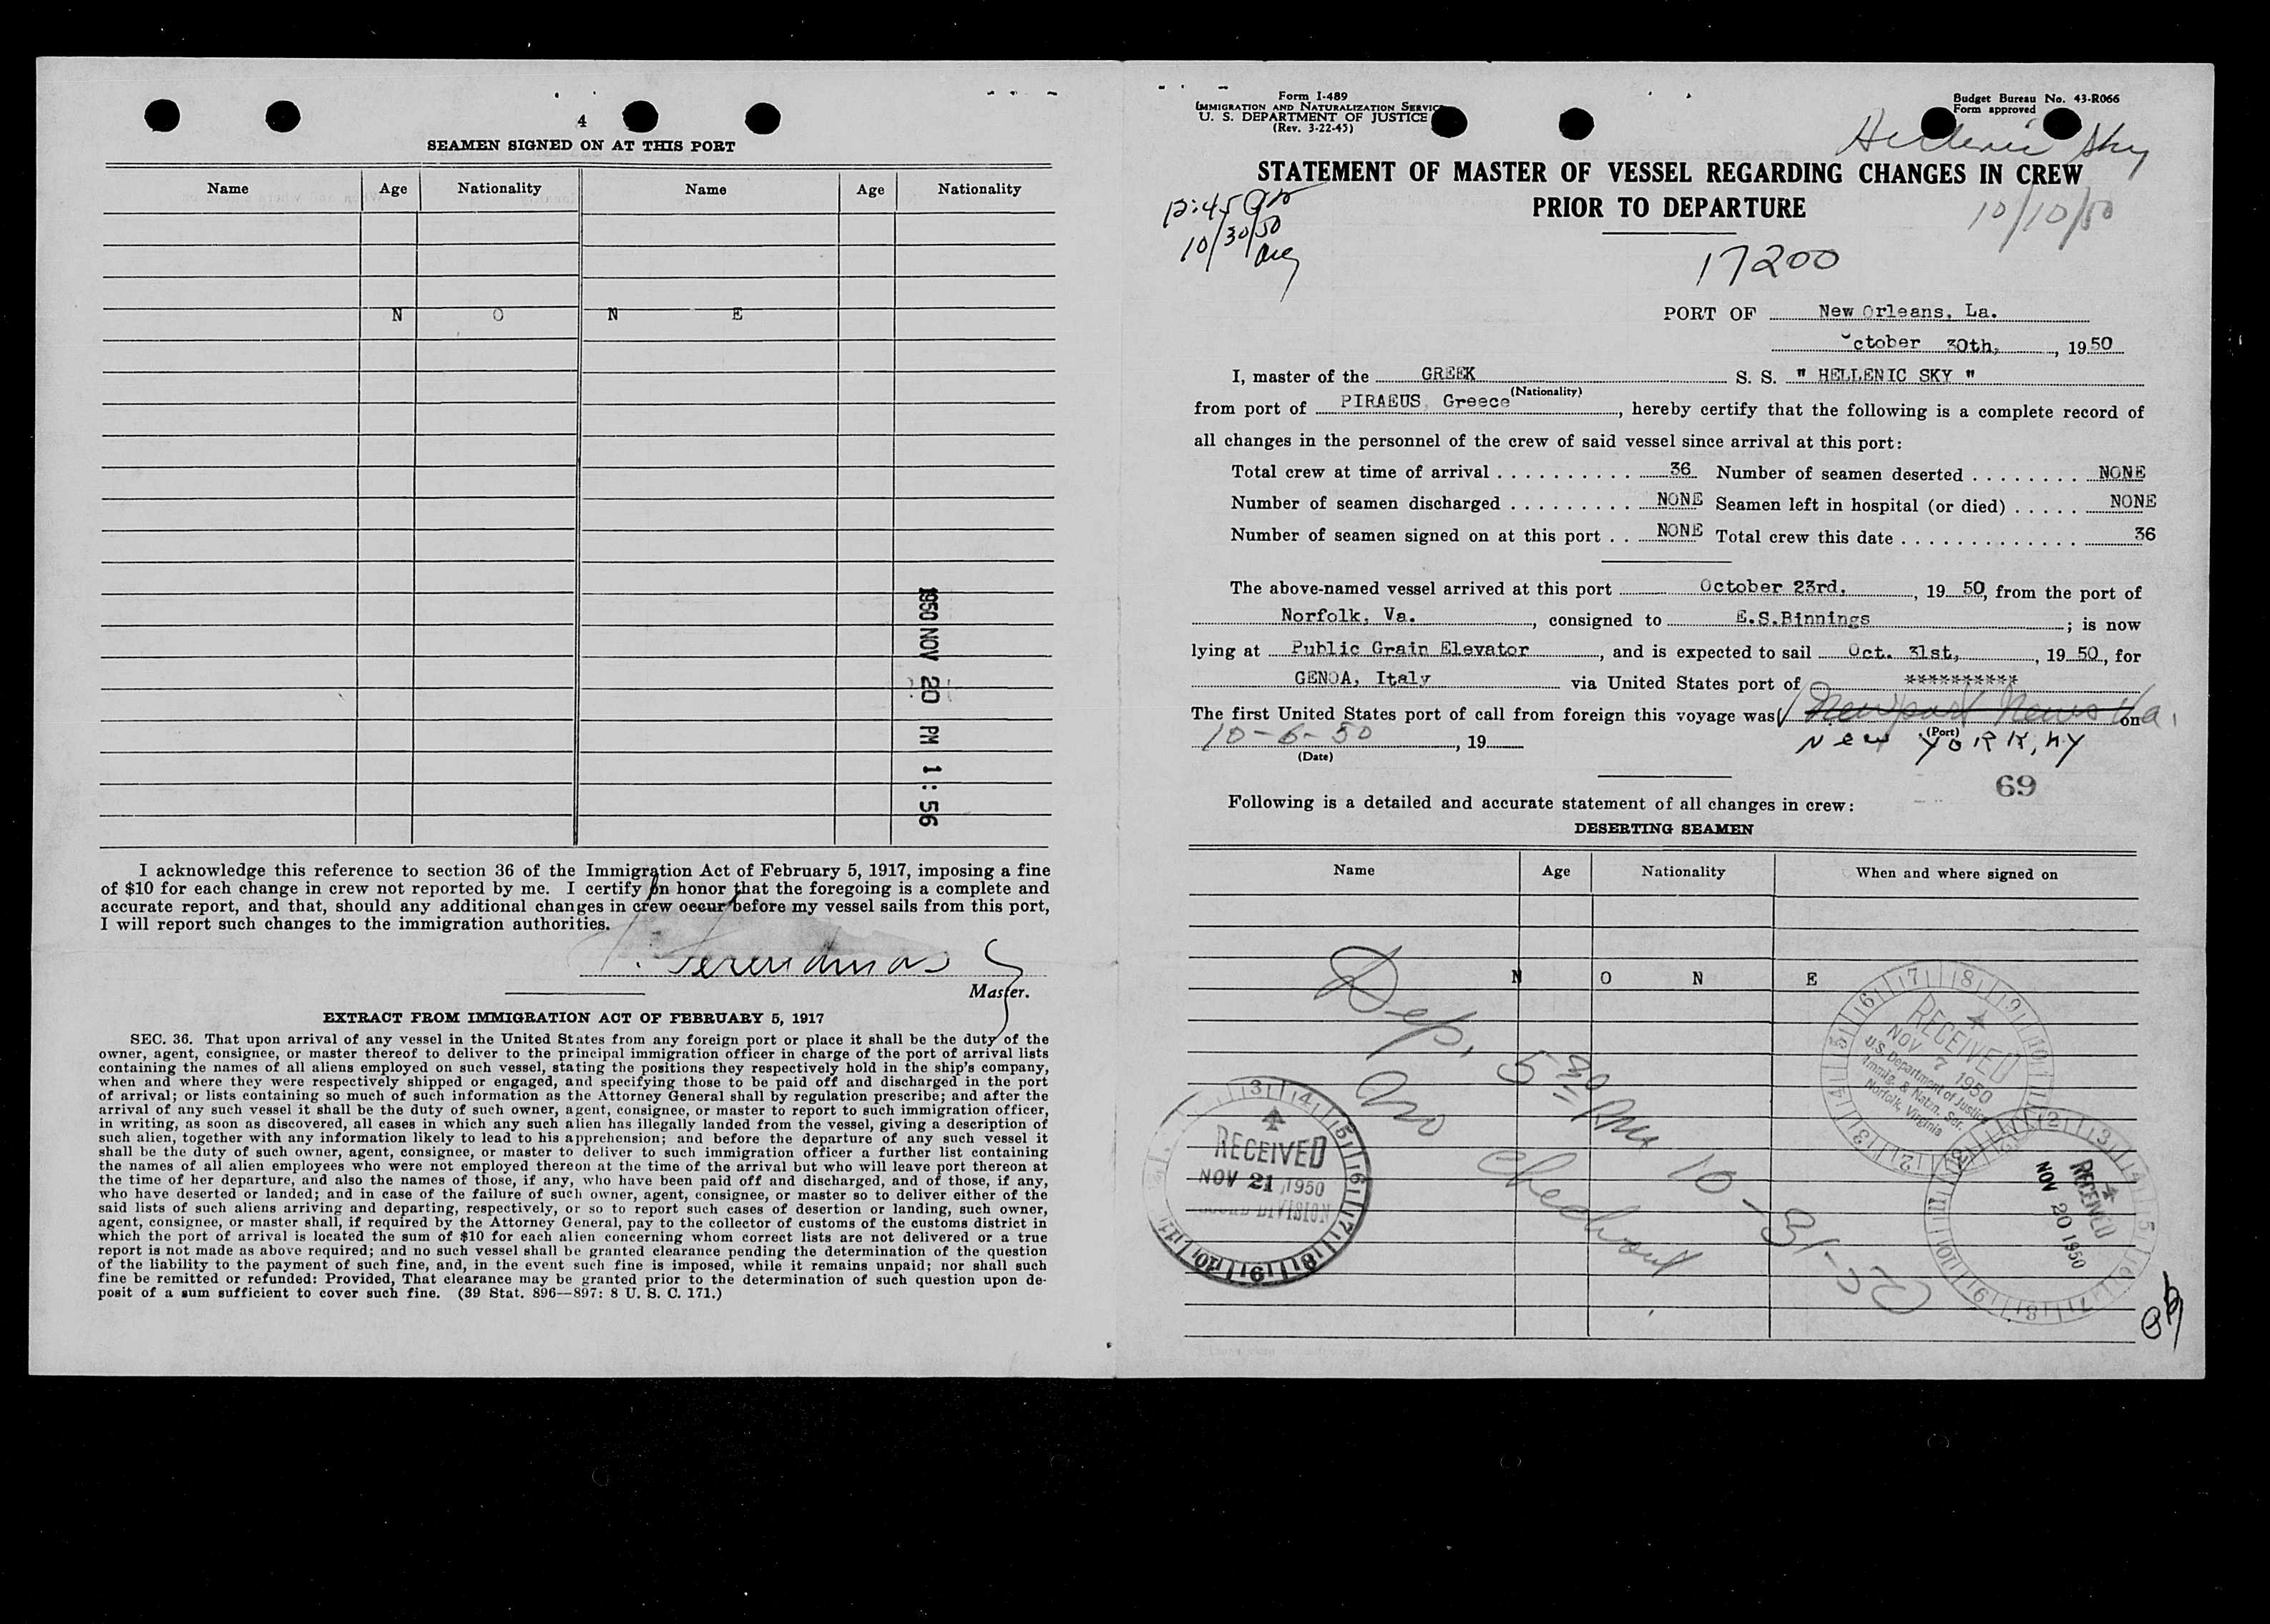 4
SEAMEN SIGNED ON AT THIS PORT
Name Age Nationality Name Age Nationality
N O N E
1950 NOV 20 PM 1:56
I acknowledge this reference to section 36 of the Immigration Act of February 5, 1917, imposing a fine
of $10 for each change in crew not reported by me. I certify on honor that the foregoing is a complete and
accurate report, and that, should any additional changes in crew occur before my vessel sails from this port,
I will report such changes to the immigration authorities.
Master.
EXTRACT FROM IMMIGRATION ACT OF FEBRUARY 5, 1917
SEC. 36. That upon arrival of any vessel in the United States from any foreign port or place it shall be the duty of the
owner, agent, consignee, or master thereof to deliver to the principal immigration officer in charge of the port of arrival lists
containing the names of all aliens employed on such vessel, stating the positions they respectively hold in the ship's company,
when and where they were respectively shipped or engaged, and specifying those to be paid off and discharged in the port
of arrival; or lists containing so much of such information as the Attorney General shall by regulation prescribe; and after the
arrival of any such vessel it shall be the duty of such owner, agent, consignee, or master to report to such immigration officer,
in writing, as soon as discovered, all cases in which any such alien has illegally landed from the vessel, giving a description of
such alien, together with any information likely to lead to his apprehension; and before the departure of any such vessel it
shall be the duty of such owner, agent, consignee, or master to deliver to such immigration officer a further list containing
the names of all alien employees who were not employed thereon at the time of the arrival but who will leave port thereon at
the time of her departure, and also the names of those, if any, who have been paid off and discharged, and of those, if any,
who have deserted or landed; and in case of the failure of such owner, agent, consignee, or master so to deliver either of the
said lists of such aliens arriving and departing, respectively, or so to report such cases of desertion or landing, such owner,
agent, consignee, or master shall, if required by the Attorney General, pay to the collector of customs of the customs district in
which the port of arrival is located the sum of $10 for each alien concerning whom correct lists are not delivered or a true
report is not made as above required; and no such vessel shall be granted clearance pending the determination of the question
of the liability to the payment of such fine, and, in the event such fine is imposed, while it remains unpaid; nor shall such
fine be remitted or refunded: Provided, That clearance may be granted prior to the determination of such question upon de-
posit of a sum sufficient to cover such fine. (39 Stat. 896—897: 8 U. S. C. 171.)
Form I-489
IMMIGRATION AND NATURALIZATION SERVICE
U. S. DEPARTMENT OF JUSTICE
(Rev. 3-22-45)
Budget Bureau No. 43-R066
Form approved
Hellenic Sky
STATEMENT OF MASTER OF VESSEL REGARDING CHANGES IN CREW
PRIOR TO DEPARTURE
10/10/50
12:45
10/30/50
17200
PORT OF New Orleans, La.
October 30th, , 1950
I, master of the GREEK S. S. " HELLENIC SKY "
(Nationality)
from port of PIRAEUS, Greece, hereby certify that the following is a complete record of
all changes in the personnel of the crew of said vessel since arrival at this port:
Total crew at time of arrival 36 Number of seamen deserted NONE
Number of seamen discharged NONE Seamen left in hospital (or died) NONE
Number of seamen signed on at this port NONE Total crew this date 36
The above-named vessel arrived at this port October 23rd, , 1950, from the port of
Norfolk, Va., consigned to E.S.Binnings ; is now
lying at Public Grain Elevator, and is expected to sail Oct. 31st, , 1950, for
GENOA, Italy via United States port of **********
The first United States port of call from foreign this voyage was Newport News Va. on
New York, NY
(Port)
10-6-50 , 19
(Date)
69
Following is a detailed and accurate statement of all changes in crew:
DESERTING SEAMEN
Name Age Nationality When and where signed on
N O N E
Dep. 5 30 PM 10-31-50
No Checkout
RECEIVED
NOV 7 1950
U.S. Department of Justice
Immig. & Natzn. Ser.
Norfolk, Virginia
RECEIVED
NOV 21 1950
DIVISION
RECEIVED
NOV 20 1950